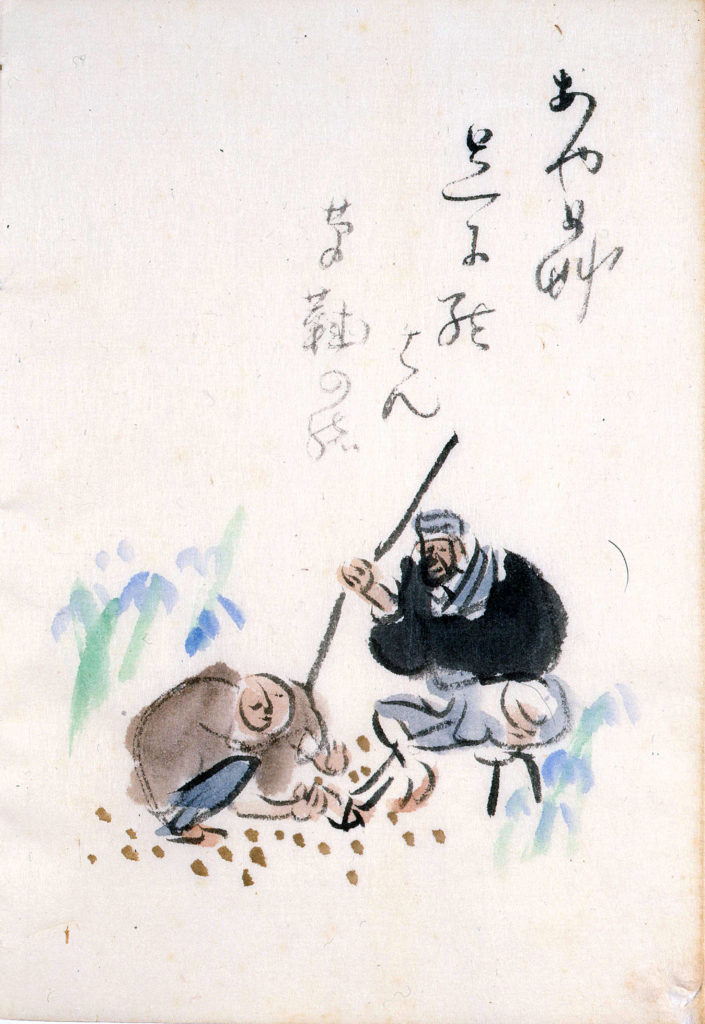 あやめ艸
足に結
はん
草鞋の緒